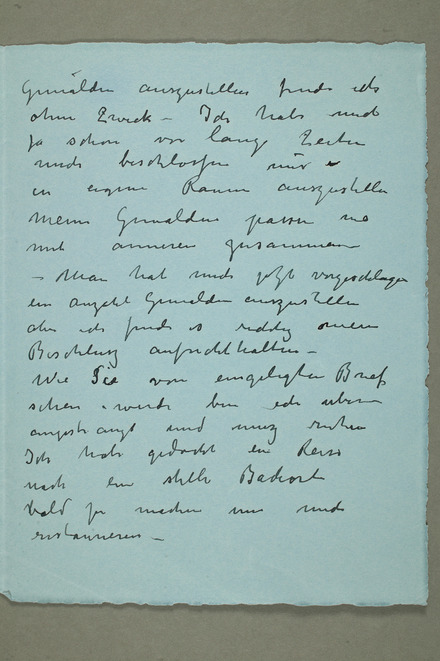 Gemälden auszustellen finde ich
ohne Zweck – Ich habe mich
ja schon vor lange Zeiten
mich beschlossen nur
in eigene Raum auszustellen
Meine Gemalden passen nie
mit anneren zusammen
– Man hat mich jetzt vorgeschlagen
ein anzahl Gemälden auszustellen
aber ich finde es richtig meinen
Beschlusz aufrichthalten –
Wie Sie vom eingeligten Brief
sehen wurde bin ich
angestrangt und musz ruhen
Ich habe gedacht ein Reise
nach ein stille Badeort
bald zu machen um mich